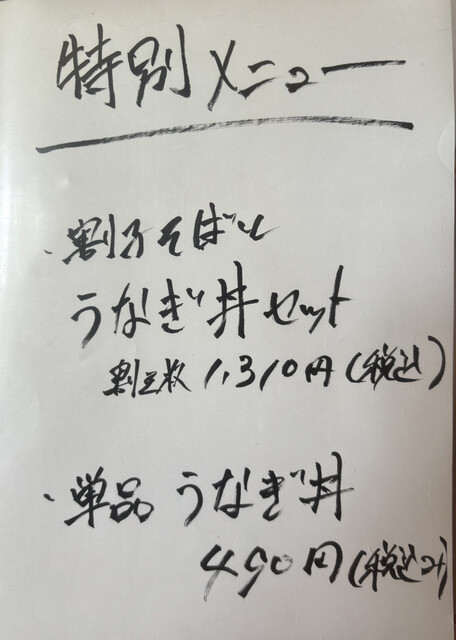 特別メニュー
・割子そばと
うなぎ丼セット
割三枚 1,310円(税込)
・単品 うなぎ丼
490円(税込み)